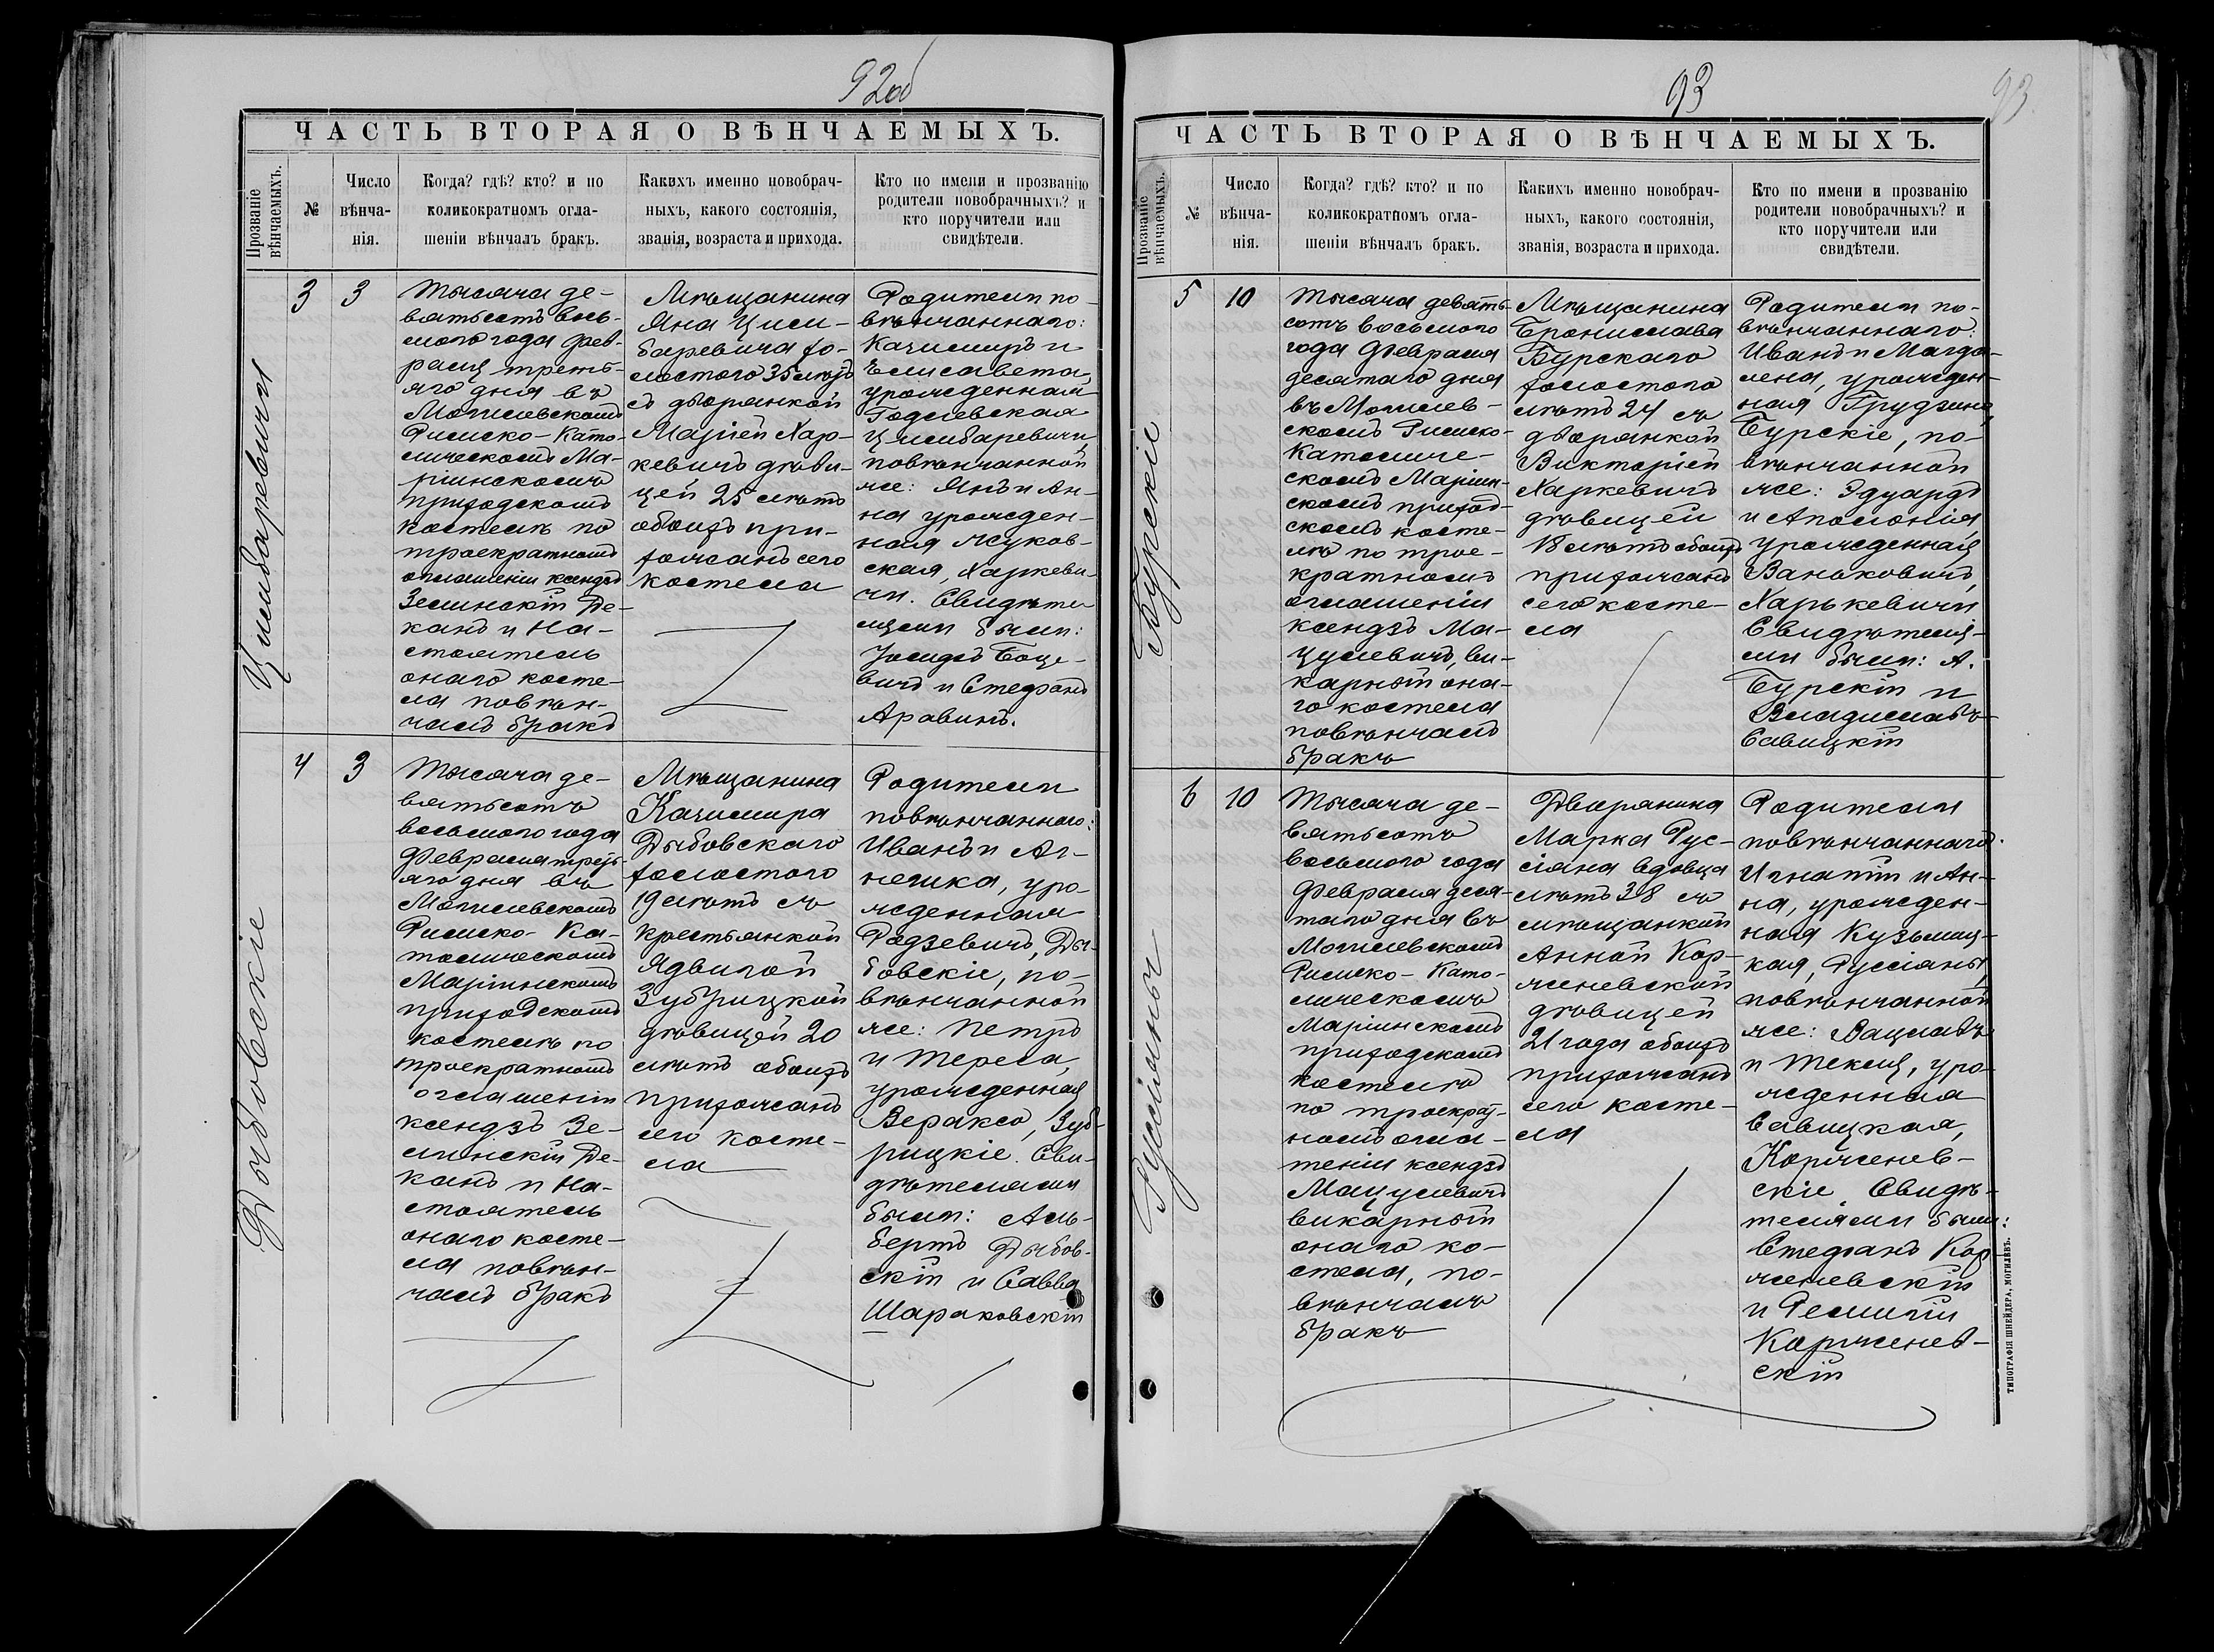 92об
ЧАСТЬ ВТОРАЯ О ВѢНЧАЕМЫХЪ.
Прозваніе
вѣнчаемыхъ.
№
Число
вѣнча-
нія.
Когда? гдѣ? кто? и по
коликократномъ огла-
шеніи вѣнчалъ бракъ.
Какихъ именно новобрач-
ныхъ, какого состоянія,
званія, возраста и прихода.
Кто по имени и прозванію
родители новобрачныхъ? и
кто поручители или
свидѣтели.
Цимбаревичъ
3
3
Тысяча де-
вятьсотъ вось-
мого года Фев-
раля треть-
яго дня въ
Могилевскомъ
Римско-Като-
лическомъ Ма-
ріинскомъ
приходскомъ
костелѣ по
троекратномъ
оглашеніи ксендзъ
Зелинскій Де-
канъ и На-
стоятель
онаго косте-
ла повѣн-
чалъ бракъ
Мѣщанина
Яна Цим-
баревича хо-
лостого 35 лѣтъ
съ дворянкой
Маріей Хар-
кевичъ дѣви-
цей 25 лѣтъ
обоихъ при-
хожанъ сего
костела
Родители по-
вѣнчаннаго:
Казимиръ и
Елисавета,
урожденная
Годлевская
Цимбаревичи,
повѣнчанной
же: Янъ и Ан-
на урожден-
ная Жуков-
ская, Харкеви-
чи. Свидѣте
лями были:
Іосифъ Боце-
вичъ и Стефанъ
Аравинъ.
Дыбовскіе
4
3
Тысяча де-
вятьсотъ
восьмого года
Февраля треть-
яго дня въ
Могилевскомъ
Римско-Ка-
толическомъ
Маріинскомъ
приходскомъ
костелѣ по
троекратномъ
оглашеніи
ксендзъ Зе-
линскій Де-
канъ и На-
стоятель
онаго косте-
ла повѣн-
чалъ бракъ
Мѣщанина
Казимира
Дыбовскаго
холостого
19 лѣтъ съ
крестьянкой
Ядвигой
Зубрицкой
дѣвицей 20
лѣтъ обоихъ
прихожанъ
сего косте-
ла
Родители
повѣнчаннаго:
Иванъ и Аг-
нешка, уро-
жденная
Родзевичъ, Ды-
бовскіе, по-
вѣнчанной
же: Петръ
и Тереса,
урожденная
Веракса, Зуб-
рицкіе. Сви-
дѣтелями
были: Аль-
бертъ Дыбов-
скій и Савва
Шараковскій
93
93
ЧАСТЬ ВТОРАЯ О ВѢНЧАЕМЫХЪ.
Прозваніе
вѣнчаемыхъ.
№
Число
вѣнча-
нія.
Когда? гдѣ? кто? и по
коликократномъ огла-
шеніи вѣнчалъ бракъ.
Какихъ именно новобрач-
ныхъ, какого состоянія,
званія, возраста и прихода.
Кто по имени и прозванію
родители новобрачныхъ? и
кто поручители или
свидѣтели.
Бурскіе
5
10
Тысяча девять-
сотъ восьмого
года Февраля
десятаго дня
въ Могилев-
скомъ Римско-
Католиче-
скомъ Маріин-
скомъ приход-
скомъ косте-
лѣ по трое-
кратномъ
оглашеніи
ксендзъ Ма-
цулевичъ, ви-
карный она-
го костела
повѣнчалъ
бракъ
Мѣщанина
Бронислава
Бурскаго
холостого
лѣтъ 24 съ
дворянкой
Викторіей
Харкевичъ
дѣвицей
18 лѣтъ обоихъ
прихожанъ
сего косте-
ла
Родители по-
вѣнчаннаго:
Иванъ и Магда-
лена, урожден-
ная Грудзина,
Бурскіе, по-
вѣнчанной
же: Эдуардъ
и Аполонія
урожденная
Ваньковичъ,
Харькевичи
Свидѣтеля-
ми были: А.
Бурскій и
Владиславъ
Савицкій
Руссіяны
6
10
Тысяча де-
вятьсотъ
восьмого года
Февраля деся-
таго дня въ
Могилевскомъ
Римско-Като-
лическомъ
Маріинскомъ
приходскомъ
костелѣ
по троекрат-
номъ огла-
шеніи ксендзъ
Мацулевичъ
викарный
онаго ко-
стела, по-
вѣнчалъ
бракъ
Дворянина
Марка Рус-
сіяна вдовца
лѣтъ 38 съ
мѣщанкой
Анной Кор-
женевской
дѣвицей
21 года обоихъ
прихожанъ
сего косте-
ла
Родители
повѣнчаннаго:
Игнатій и Ан-
на, урожден-
ная Кузьмиц-
кая, Руссіяны,
повѣнчанной
же: Вацлавъ
и Текля, уро-
жденная
Савицкая,
Корженев-
скіе. Свидѣ-
телями были:
Стефанъ Кор-
женевскій
и Ремигій
Корженев-
скій
ТИПОГРАФІЯ ШНЕЙДЕРА, МОГИЛЕВЪ.